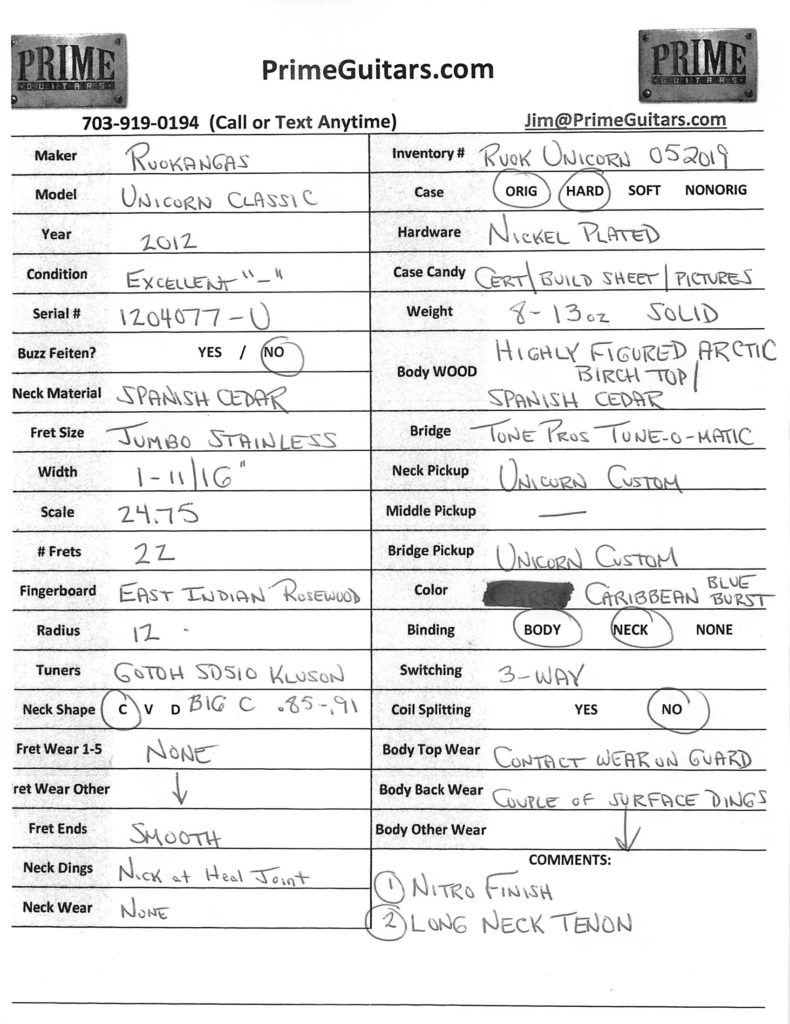 PRIME
GUITARS
PrimeGuitars.com
PRIME
GUITARS
703-919-0194 (Call or Text Anytime)
Jim@PrimeGuitars.com
Maker RUOKANGAS
Model UNICORN CLASSIC
Year 2012
Condition EXCELLENT "-"
Serial # 1204077-U
Buzz Feiten? YES / NO
Neck Material SPANISH CEDAR
Fret Size JUMBO STAINLESS
Width 1-11/16"
Scale 24.75
# Frets 22
Fingerboard EAST INDIAN ROSEWOOD
Radius 12
Tuners GOTOH SD510 KLUSON
Neck Shape C V D BIG C .85-.91
Fret Wear 1-5 NONE
ret Wear Other ↓
Fret Ends SMOOTH
Neck Dings NICK at Heal Joint
Neck Wear NONE
Inventory # RUOK UNICORN 052019
Case ORIG HARD SOFT NONORIG
Hardware NICKEL PLATED
Case Candy CERT/BUILD SHEET/PICTURES
Weight 8-13oz SOLID
Body WOOD HIGHLY FIGURED ARCTIC
BIRCH TOP/
SPANISH CEDAR
Bridge TONE PROS TUNE-O-MATIC
Neck Pickup UNICORN CUSTOM
Middle Pickup —
Bridge Pickup UNICORN CUSTOM
Color CARIBBEAN BLUE
BURST
Binding BODY NECK NONE
Switching 3-WAY
Coil Splitting YES NO
Body Top Wear CONTACT WEAR ON GUARD
Body Back Wear COUPLE OF SURFACE DINGS
Body Other Wear ↓
COMMENTS:
1 NITRO FINISH
2 LONG NECK TENON